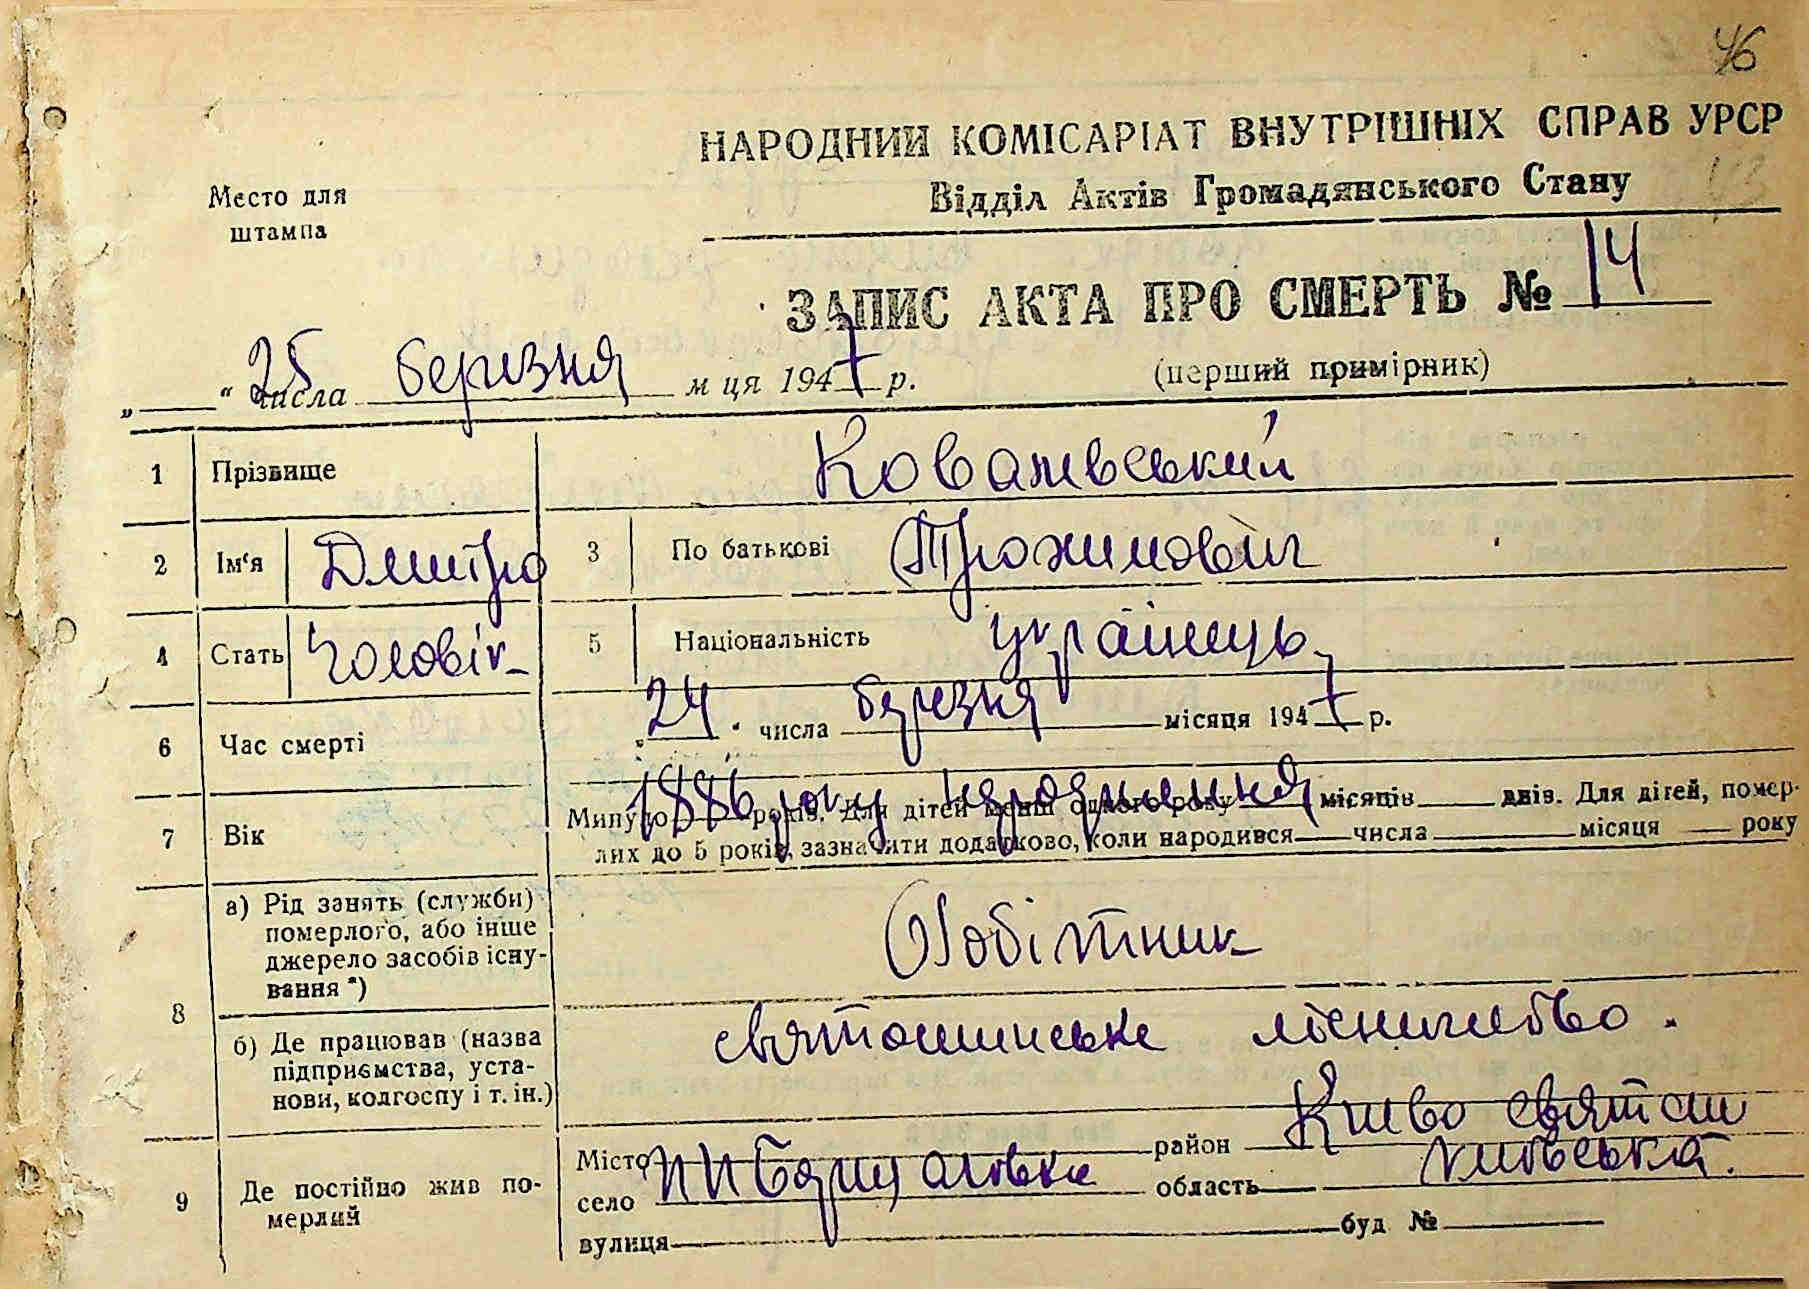 46
НАРОДНИЙ КОМІСАРІАТ ВНУТРІШНІХ СПРАВ УРСР
Відділ Актів Громадянського Стану
Место для
штампа
ЗАПИС АКТА ПРО СМЕРТЬ № 14
(перший примірник)
„ “ 25 числа березня м ця 1947 р.
1 Прізвище Ковалевський
2 Ім‘я Дмитро 3 По батькові Трохимович
4 Стать Чоловік 5 Національність українець
6 Час смерті „24“ числа березня місяця 1947 р.
7 Вік Минуло 1886 року народження років. Для дітей менш одного року місяців днів. Для дітей, помер-
лих до 5 років, зазначити додатково, коли народився числа місяця року
8 а) Рід занять (служби)
померлого, або інше
джерело засобів існу-
вання *)
Робітник
б) Де працював (назва
підприємства, уста-
нови, колгоспу і т. ін.)
святошинське лісництво.
9 Де постійно жив по-
мерлий
Місто район Києво святош
село область київська.
вулиця буд №